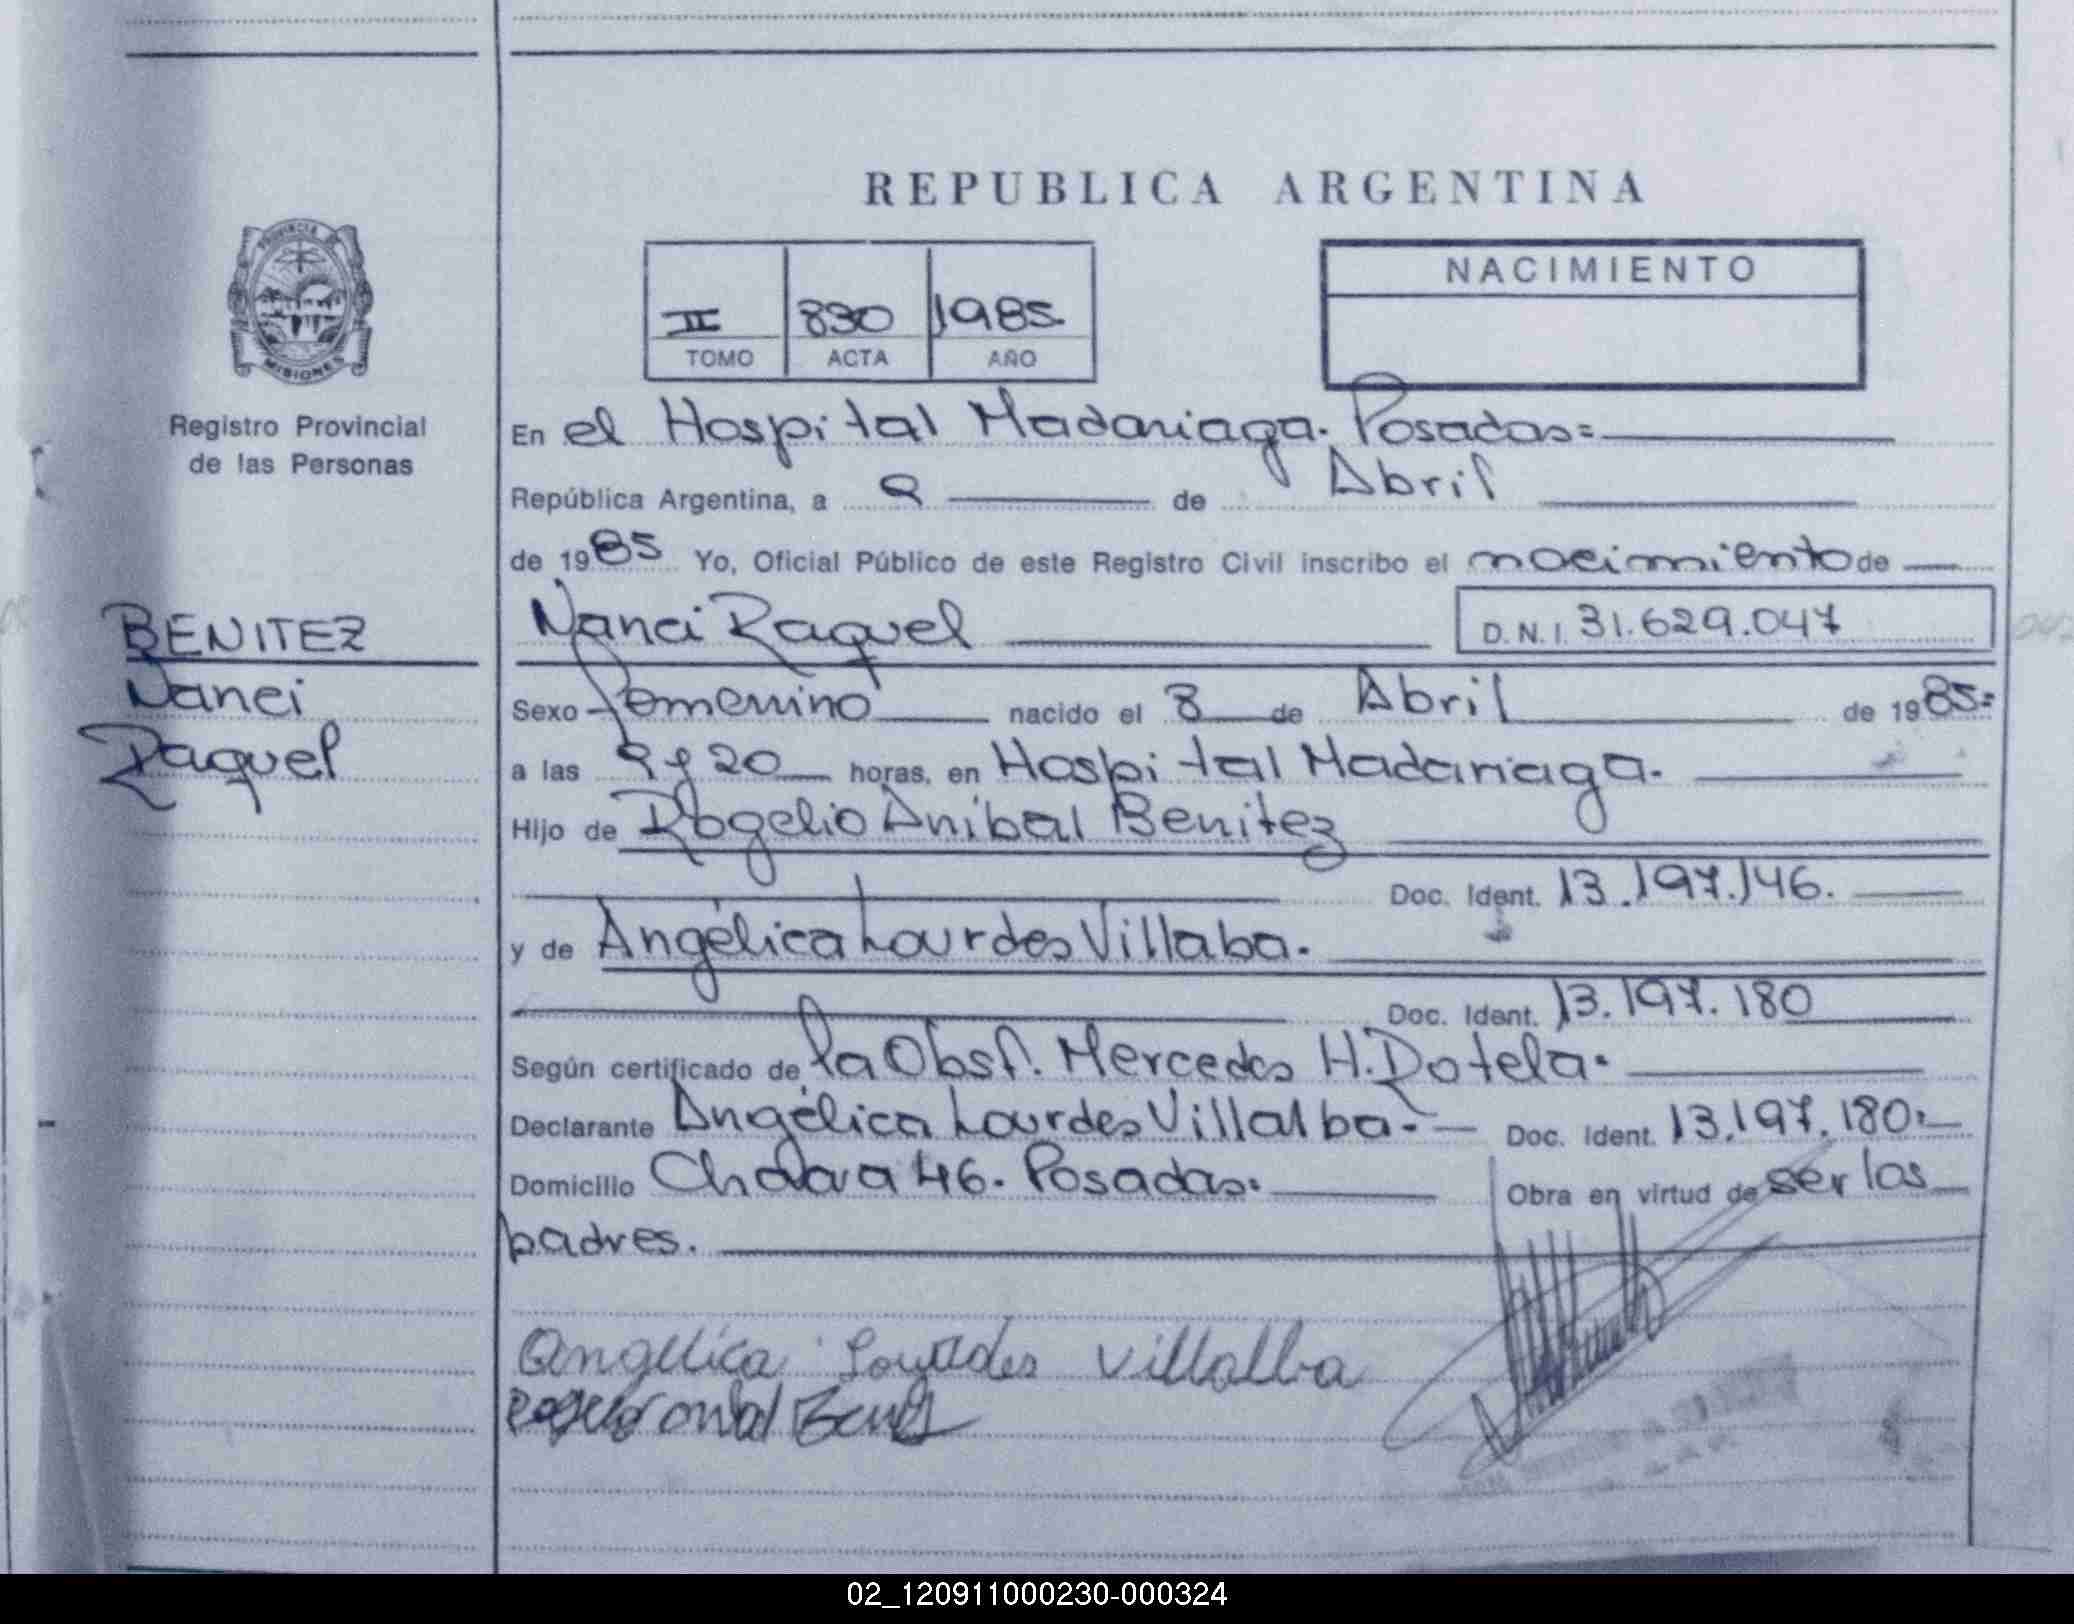 REPUBLICA ARGENTINA
PROVINCIA DE
MISIONES
Registro Provincial
de las Personas
II 830 1985
TOMO ACTA AÑO
NACIMIENTO
En el Hospital Madariaga. Posadas=
República Argentina, a 9 de Abril
de 1985 Yo, Oficial Público de este Registro Civil inscribo el nacimiento de
BENITEZ
Nanci
Raquel
Nanci Raquel D.N.I. 31.629.047
Sexo femenino nacido el 8 de Abril de 1985=
a las 9 y 20 horas, en Hospital Madariaga.
Hijo de Rogelio Aníbal Benitez
Doc. Ident. 13.197.146.
y de Angélica Lourdes Villaba.
Doc. Ident. 13.197.180
Según certificado de la Obst. Mercedes H. Dotela.
Declarante Angélica Lourdes Villalba.- Doc. Ident. 13.197.180.
Domicilio 46. Posadas. Obra en virtud de ser los
padres.
Angelica Lourdes Villalba
02_120911000230-000324